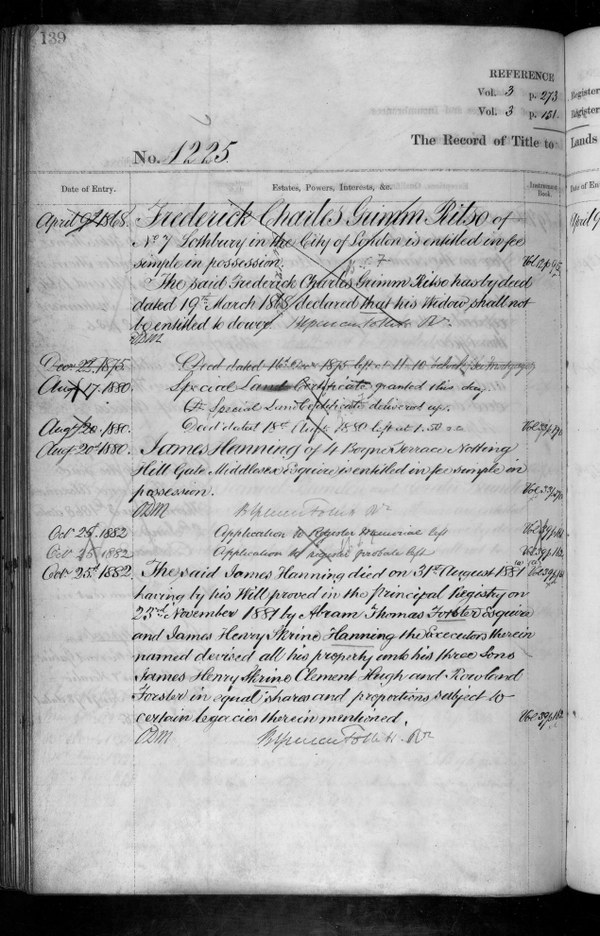 139
REFERENCE
Vol. 3 p. 273
Vol. 3 p. 151.
The Record of Title to
No. 1225.
Date of Entry. Estates, Powers, Interests, &c. Instrument Book.
April 9th 1868. Frederick Charles Grimm Ritso of
No 7 Lothbury in the City of London is entitled in fee
simple in possession.
The said Frederick Charles Grimm Ritso has by deed
dated 19th March 1868 declared that his Widow shall not
be entitled to dower.
1875 Deed dated 1875 left at 11.10
Aug 17. 1880. Special Land Certificate granted this day.
Special Land Certificate delivered up.
Aug 20. 1880. Deed dated 18th Augt 1880 left at 1.50
Aug 20th 1880. James Hanning of 4 Boyne Terrace Notting
Hill Gate Middlesex Esquire is entitled in fee simple in
possession.
ODM
Oct 25. 1882 Application to Register Memorial left
Oct 25 1882 Application to register probate left
Oct 25th 1882. The said James Hanning died on 31st August 1881
having by his Will proved in the Principal Registry on
23rd November 1881 by Abram Thomas Forster Esquire
and James Henry Skrine Hanning the Executors therein
named devised all his property unto his three Sons
James Henry Skrine Clement Hugh and Rowland
Forster in equal shares and proportions subject to
certain legacies therein mentioned.
ODM
Register
Register
Lands
Date of En
April 9